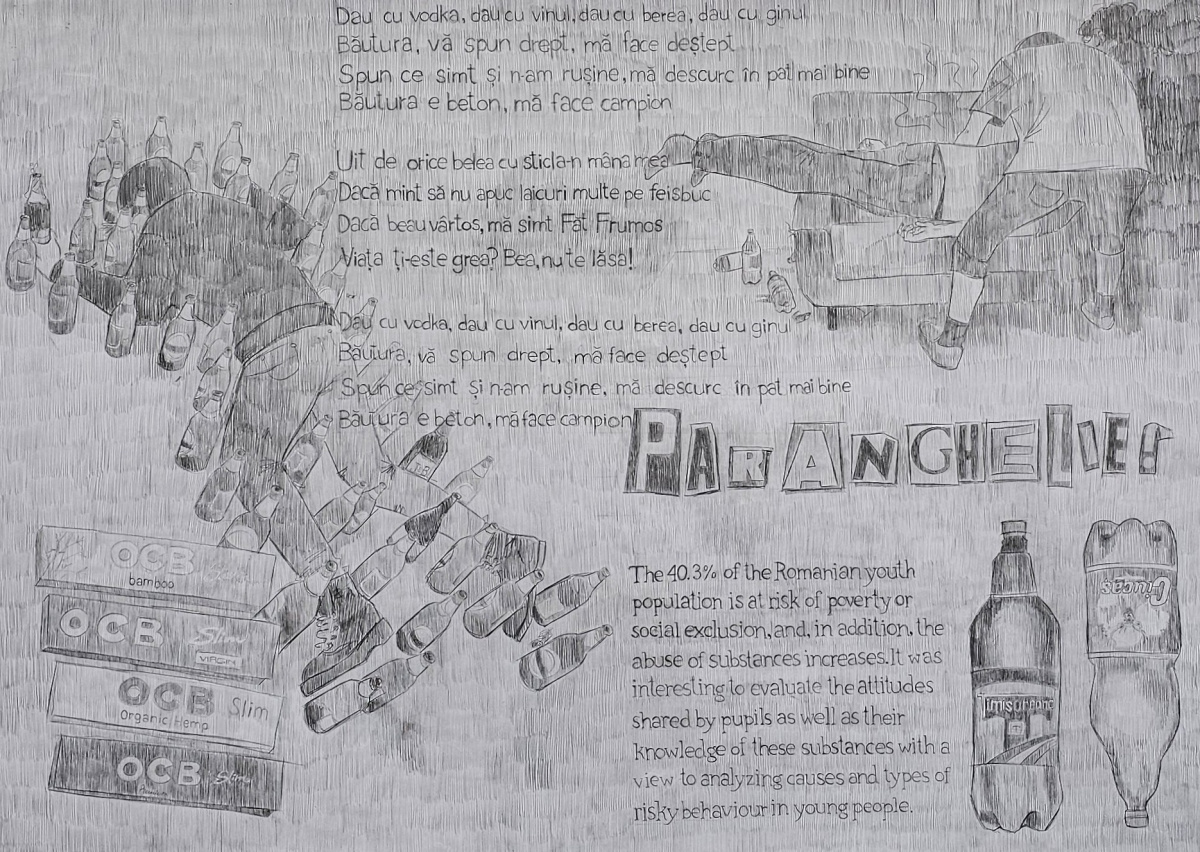 Dau cu vodka, dau cu vinul, dau cu berea, dau cu ginul
Băutura, vă spun drept, mă face deștept
Spun ce simt și n-am rușine, mă descurc în pat mai bine
Băutura e beton, mă face campion
Uit de orice belea cu sticla-n mâna mea
Dacă mint să nu apuc laicuri multe pe feisbuc
Dacă beau vârtos, mă simt Făt Frumos
Viața ți-este grea? Bea, nu te lăsa!
Dau cu vodka, dau cu vinul, dau cu berea, dau cu ginul
Băutura, vă spun drept, mă face deștept
Spun ce simt și n-am rușine, mă descurc în pat mai bine
Băutura e beton, mă face campion
PARANGHELIES
The 40.3% of the Romanian youth
population is at risk of poverty or
social exclusion, and, in addition, the
abuse of substances increases. It was
interesting to evaluate the attitudes
shared by pupils as well as their
knowledge of these substances with a
view to analyzing causes and types of
risky behaviour in young people.
OCB
bamboo
OCB Slim
VIRGIN
OCB Slim
Organic Hemp
OCB Slim
Timișoreana
Ciucaș